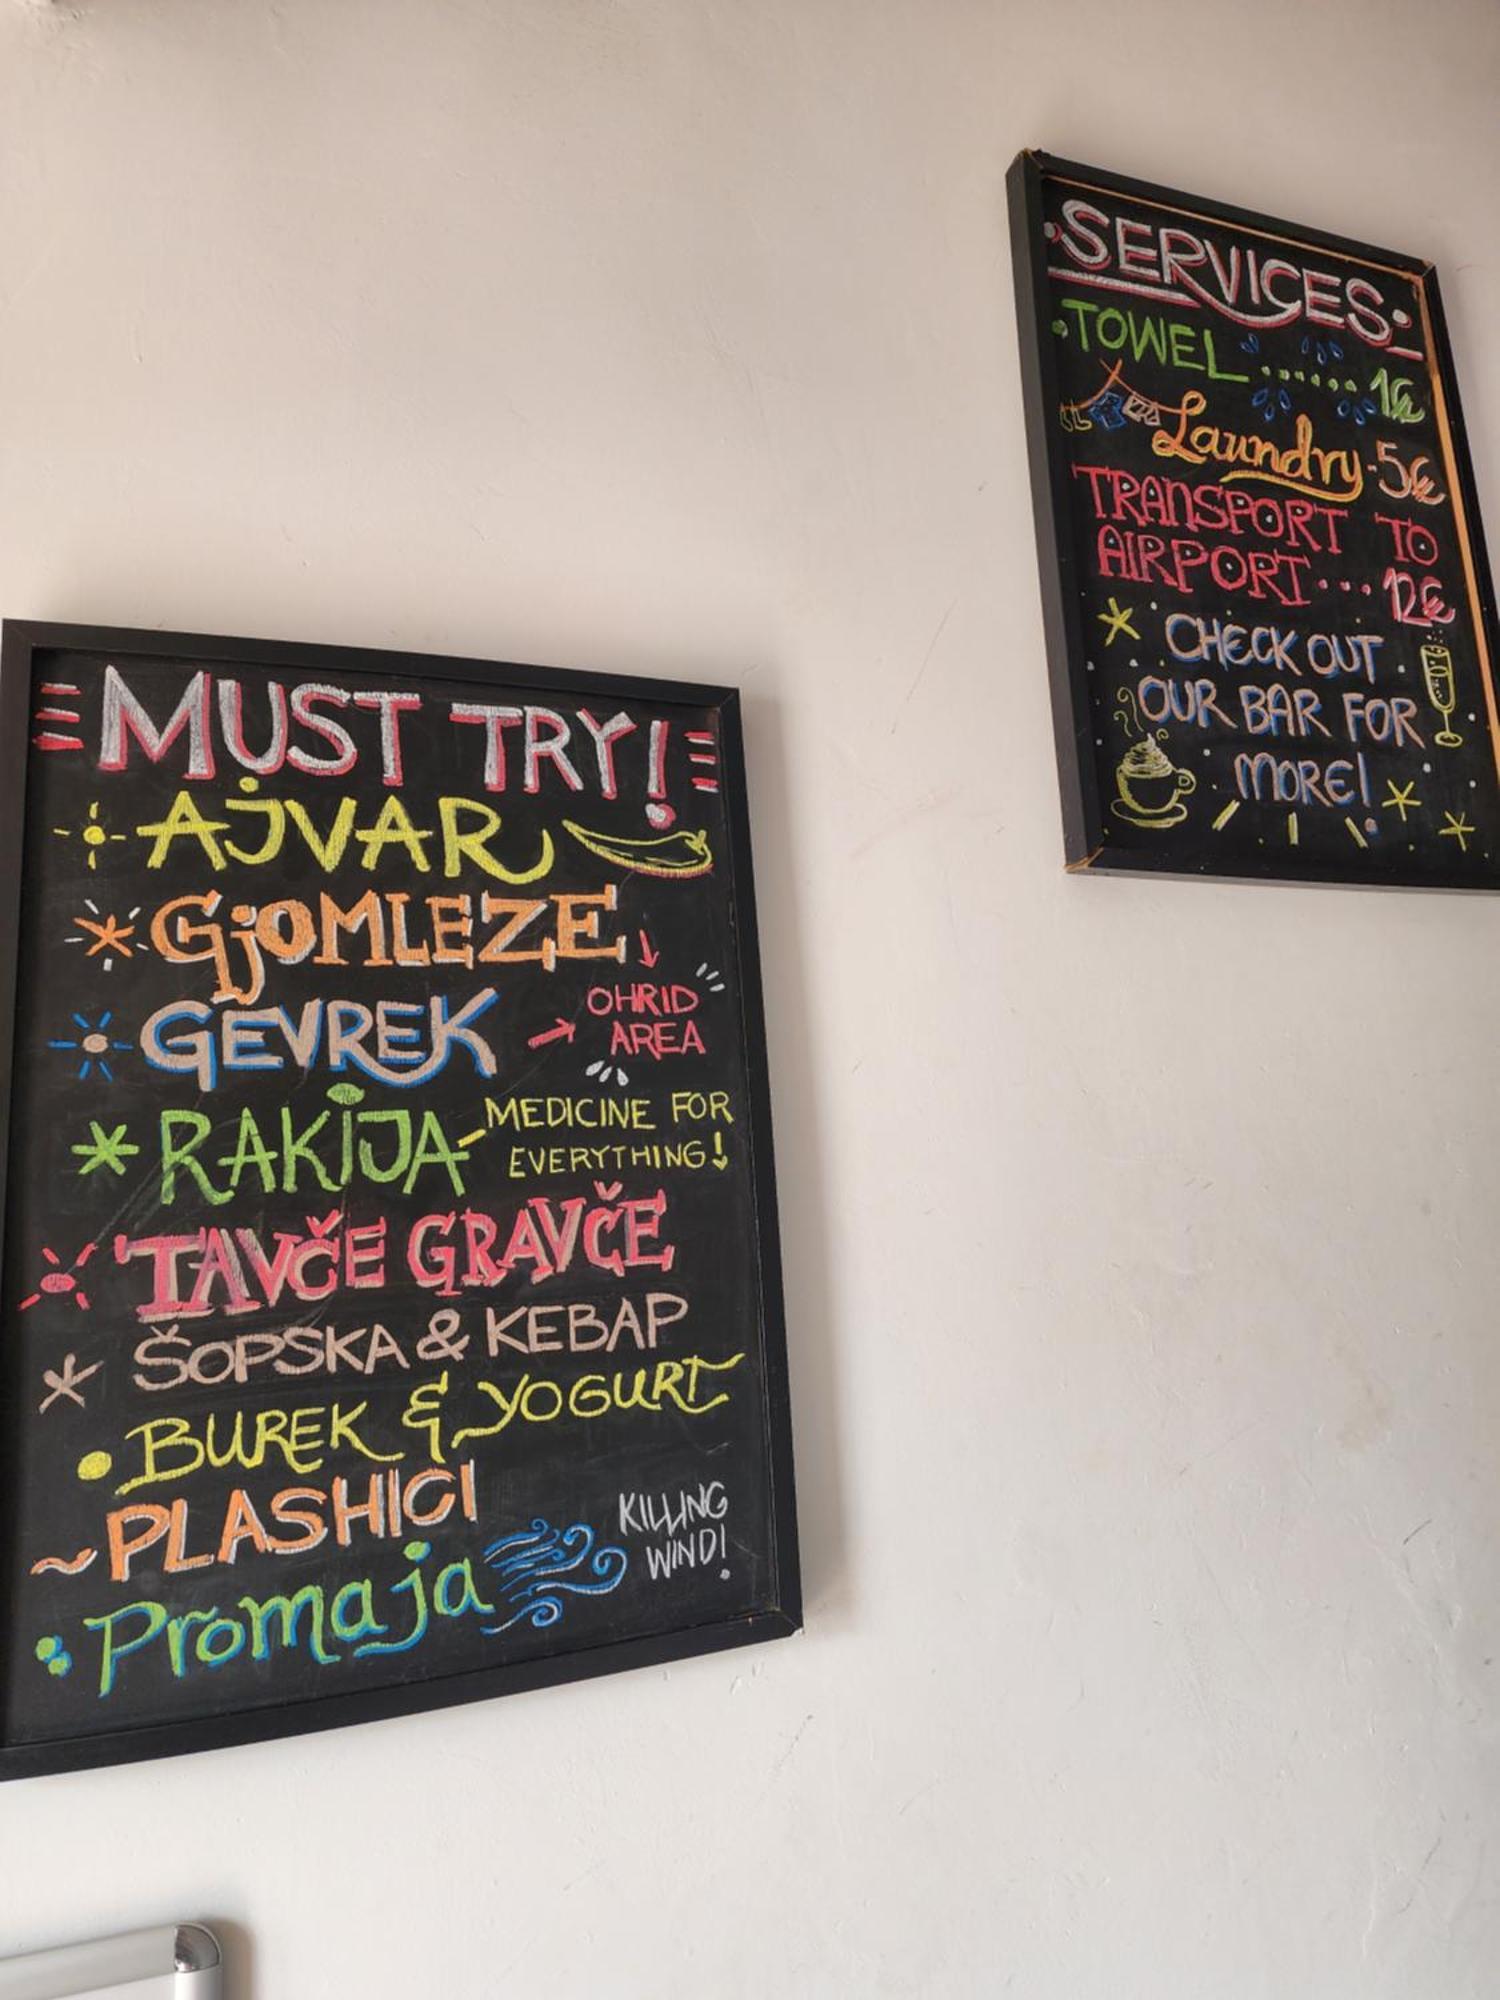 MUST TRY!
AJVAR
GJOMLEZE
GEVREK
OHRID
AREA
RAKIJA
MEDICINE FOR
EVERYTHING!
TAVČE GRAVČE
ŠOPSKA & KEBAP
BUREK & YOGURT
~PLASHICI
Promaja
KILLING
WIND!
SERVICES
TOWEL ...... 1€
Laundry - 5€
TRANSPORT TO
AIRPORT ... 12€
CHECK OUT
OUR BAR FOR
MORE!